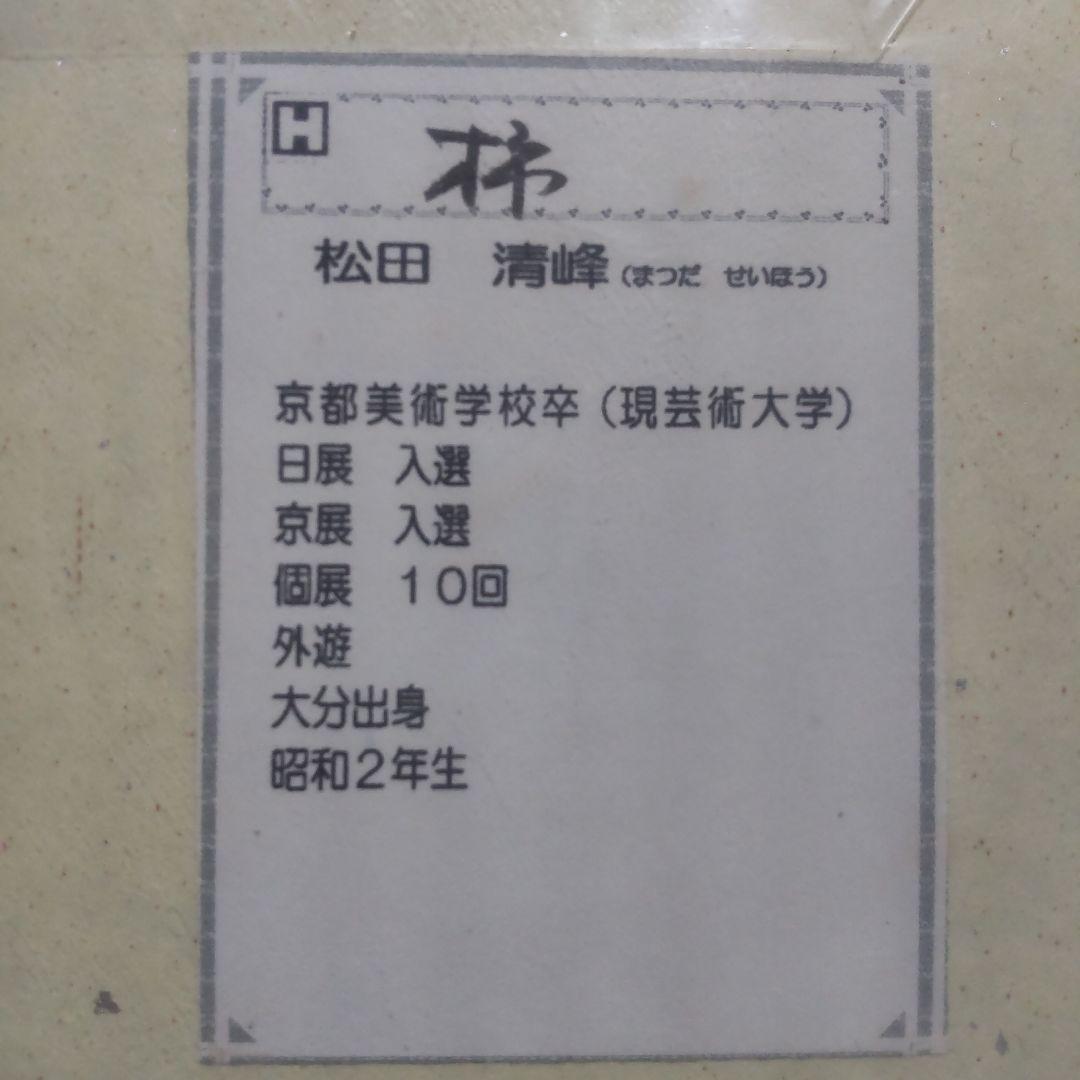 H 柿
松田 清峰（まつだ せいほう）
京都美術学校卒（現芸術大学）
日展 入選
京展 入選
個展 １０回
外遊
大分出身
昭和２年生